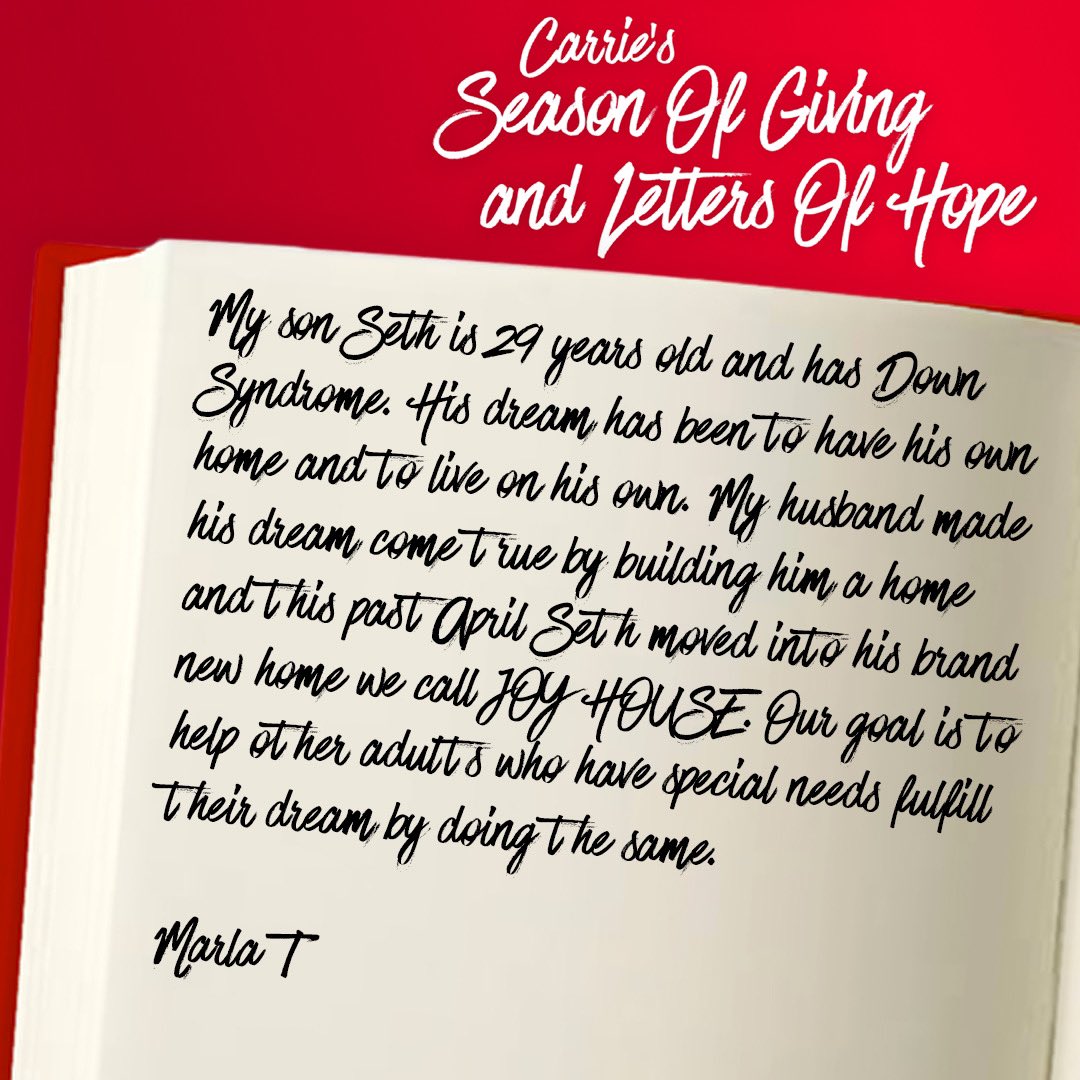 Carrie's
Season Of Giving
and Letters Of Hope
My son Seth is 29 years old and has Down
Syndrome. His dream has been to have his own
home and to live on his own. My husband made
his dream come true by building him a home
and this past April Seth moved into his brand
new home we call JOY HOUSE. Our goal is to
help other adults who have special needs fulfill
their dream by doing the same.
Marla T